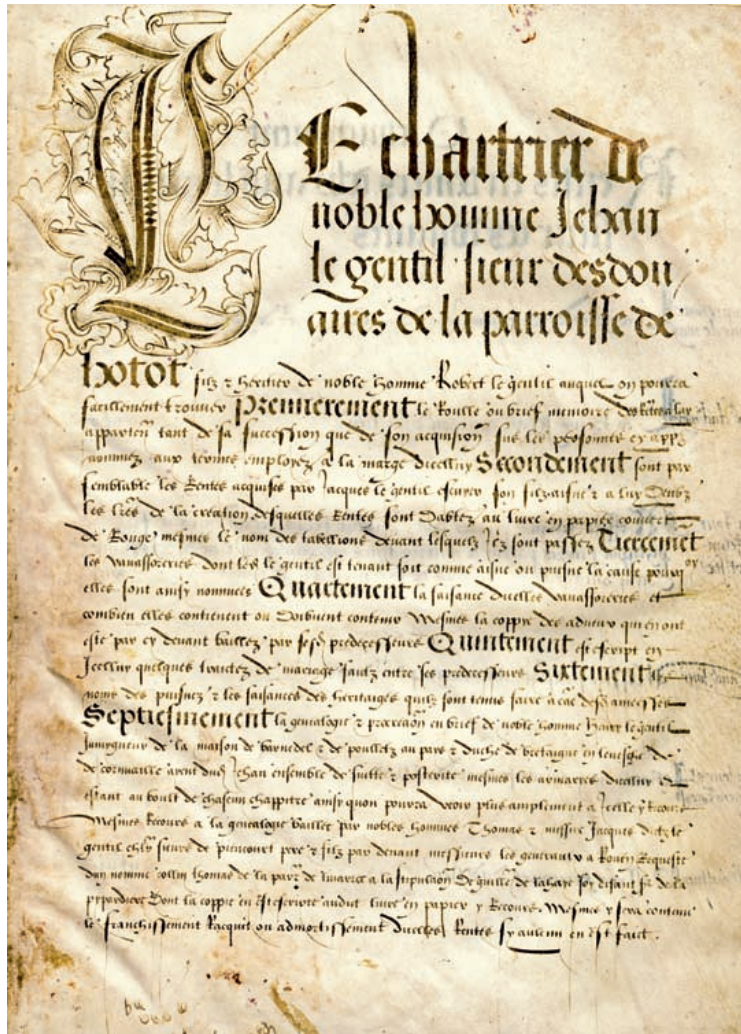 LE chartrier de
noble homme Jehan
le gentil sieur desdou
aires de la parroisse de
hotot filz & heritier de noble homme Robert le gentil auquel on pourra
facillement trouver Premierement le Roulle ou brief memoire des Rentes a luy
apparten tant de sa succession que de son acquision sus les personnes cy
nommez aux termes employez a la marge dicelluy Secondement sont par
semblable les Rentes acquises par Jacques le gentil escuyer son filz aisne & a luy
les lres de la creation desquelles Rentes sont au livre en papier couvert
de Rouge mesmes le nom des tabellions devant lesquelz Icez sont passez Tiercemet
les vavassoreries dont led le gentil est tenant soit comme aisne ou puisne la cause pourquoy
elles sont ainsy nommees Quartement la faisance dicelles vavassoreries et
combien elles contiennent ou doibuent contenir Mesmes la coppie des adueuz qui en ont
este par cy devant baillez par sesd predecesseurs Quintement est escript en
Icelluy quelques traictez de mariage faictz entre ses predecesseurs Sixtement
noms des puisnez & les faisances des heritaiges quilz sont tenus faire a cause
Septiesmement la genealogie & procreaon en brief de noble homme le gentil
de la maison de & de au pays & duche de bretaigne en levesche de
de cornuaille dud Jehan ensemble de suitte & posterite mesmes les armaires dicelluy
estant au boult de chascun chappitre ainsy quon pourra veoir plus amplement a Icelle y Recours
Mesmes Recours a la genealogie baillee par nobles hommes Thomas & messire Jacques dictz le
gentil sieurs de piencourt pere & filz par devant messieurs les generaulx a Rouen Requeste
dun nomme collin thomas de la par de a la stipulaon de de lahaye soy disant de la
Dont la coppie en est escripte audit livre en papier y Recours. Mesmes y sera contenu
le franchissement Racquit ou admortissement dicelles Rentes sy aucun en est faict.